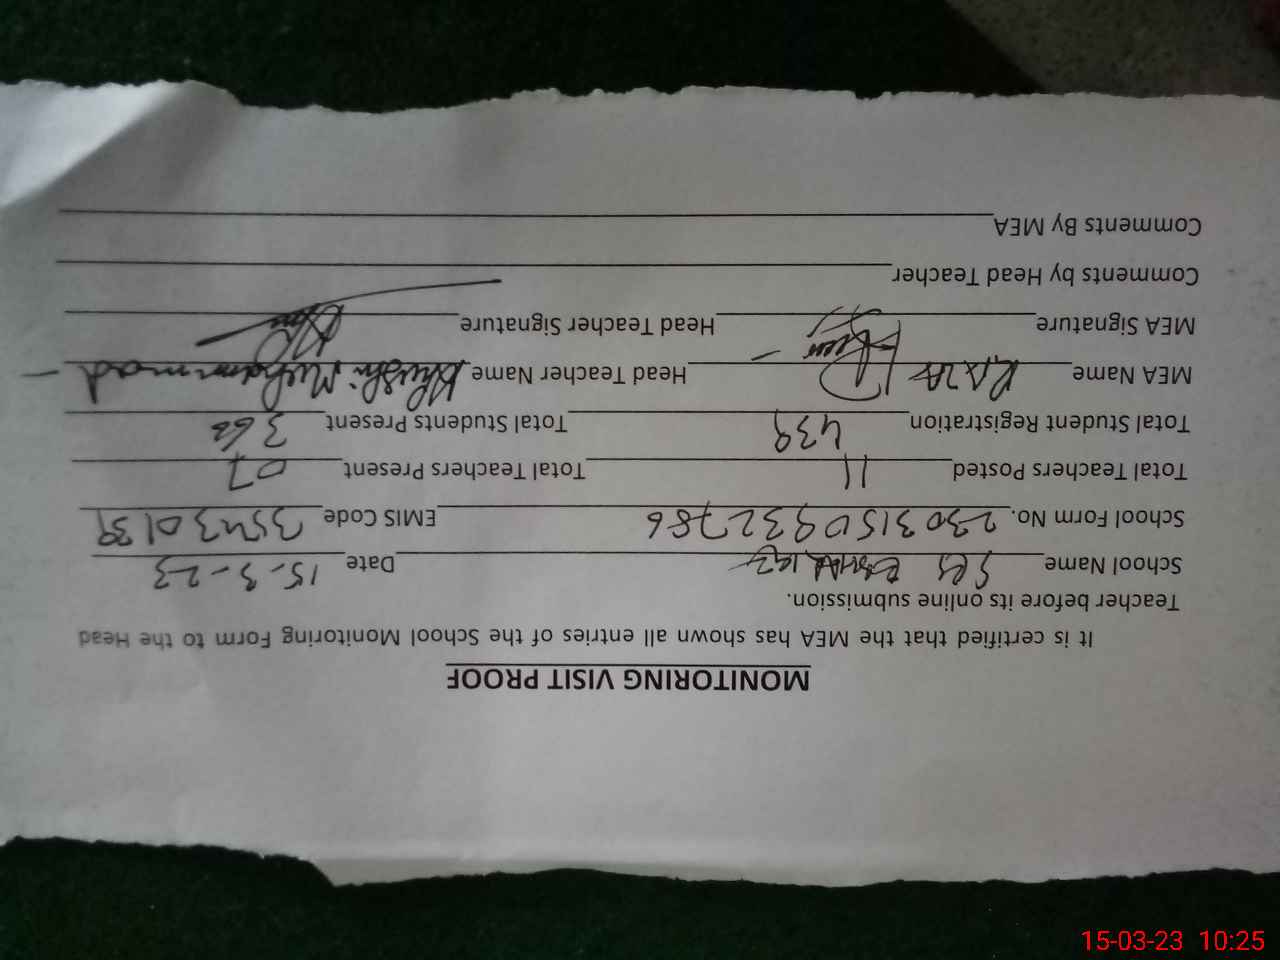 MONITORING VISIT PROOF
It is certified that the MEA has shown all entries of the School Monitoring Form to the Head
Teacher before its online submission.
School Name Date 15-3-23
School Form No. 230315093 2786 EMIS Code 35430139
Total Teachers Posted 11 Total Teachers Present 07
Total Student Registration 439 Total Students Present 360
MEA Name RAZA Head Teacher Name Khushi Muhammad
MEA Signature Head Teacher Signature
Comments by Head Teacher
Comments By MEA
15-03-23 10:25